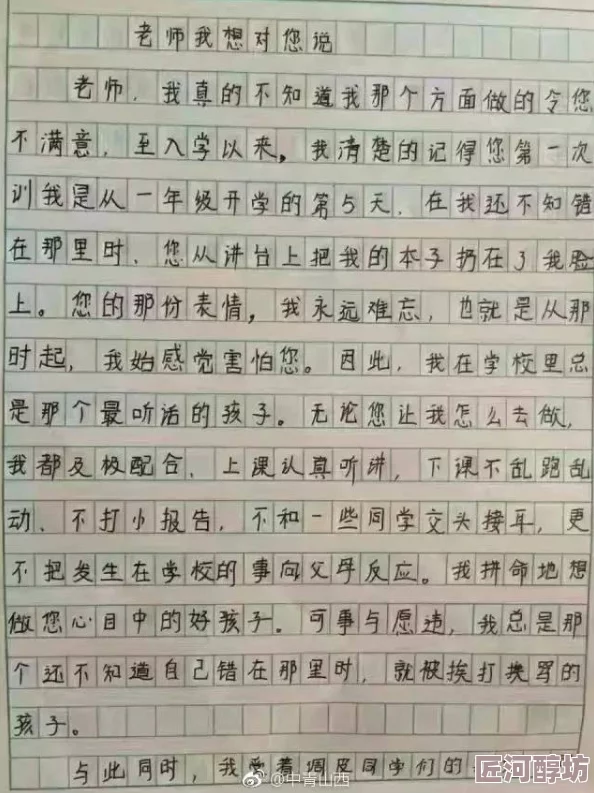 老师我想对您说
老师，我真的不知道我那个方面做的令您
不满意，至入学以来，我清楚的记得您第一次
训我是从一年级开学的第5天，在我还不知错
在那里时，您从讲台上把我的本子扔在了我脸
上。您的那份表情，我永远难忘，也就是从那
时起，我始感觉害怕您。因此，我在学校里总
是那个最听话的孩子。无论您让我怎么去做，
我都及极配合、上课认真听讲，下课不乱跑乱
动、不打小报告，不和一些同学交头接耳，更
不把发生在学校的事向父母反应。我拼命地想
做您心目中的好孩子。可事与愿违，我总是那
个还不知道自己错在那里时，就被挨打挨骂的
孩子。
与此同时，我受着调皮同学们的
@中青山西
匠河醇坊